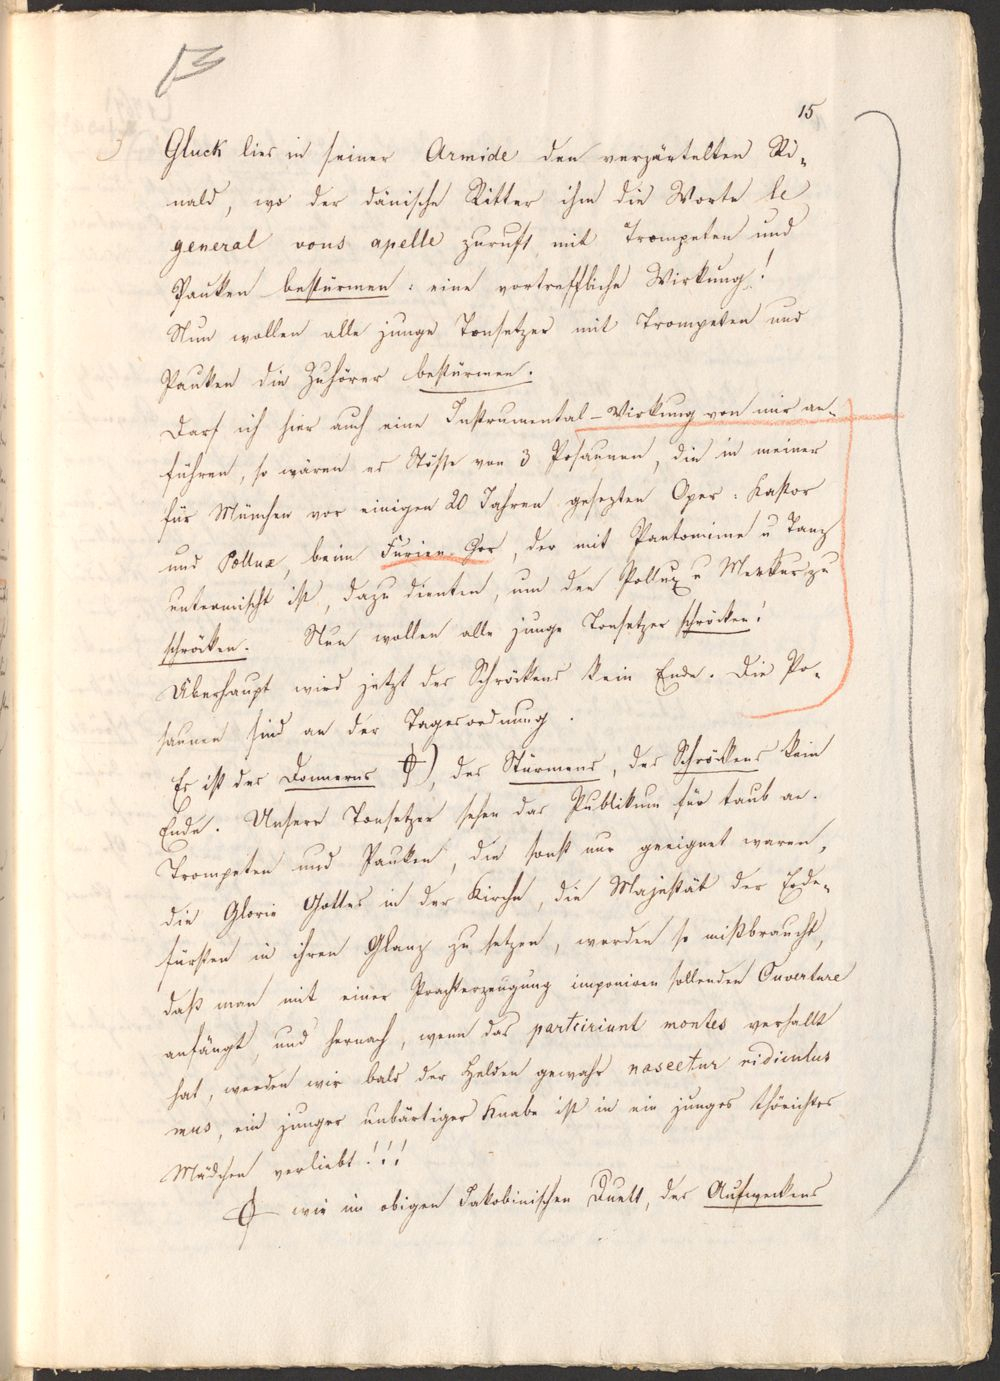 13
15
Gluck lies in seiner Armide den verzärtelten Ri-
nald, wo der dänische Ritter ihm die Worte le
general vous apelle zuruft mit Trompeten und
Pauken bestürmen: eine vortreffliche Wirkung!
Nun wollen alle junge Tonsetzer mit Trompeten und
Pauken die Zuhörer bestürmen.
Darf ich hier auch eine Instrumental-Wirkung von mir an-
führen, so wären es Stösse von 3 Posaunen, die in meiner
für München vor einigen 20 Jahren gesezten Oper: Kastor
und Pollux, beim Furien-Cor, der mit Pantomime u Tanz
untermischt ist, dazu dienten, um den Pollux u Merkur zu
schröcken. Nun wollen alle junge Tonsetzer schröcken!
Überhaupt wird jetzt des Schröckens kein Ende. Die Po-
saunen sind an der Tagesordnung.
Es ist des Donnerns ϕ), des Stürmens, des Schröckens kein
Ende. Unsere Tonsetzer sehen das Publikum für taub an.
Trompeten und Pauken, die sonst nur geeignet waren,
die Glorie Gottes in der Kirche, die Majestät der Erde-
fürsten in ihren Glanz zu setzen, werden so mißbraucht,
daß man mit einer Prachterzeugung imponiren sollenden Ouverture
anfängt, und hernach, wenn das partciriunt montes verhallt
hat, werden wir bald der Helden gewahr nascetur ridiculus
mus, ein junger unbärtiger Knabe ist in ein junges thörichtes
Mädchen verliebt!!!
ϕ wie im obigen Jakobinischen Duett, des Aufweckens